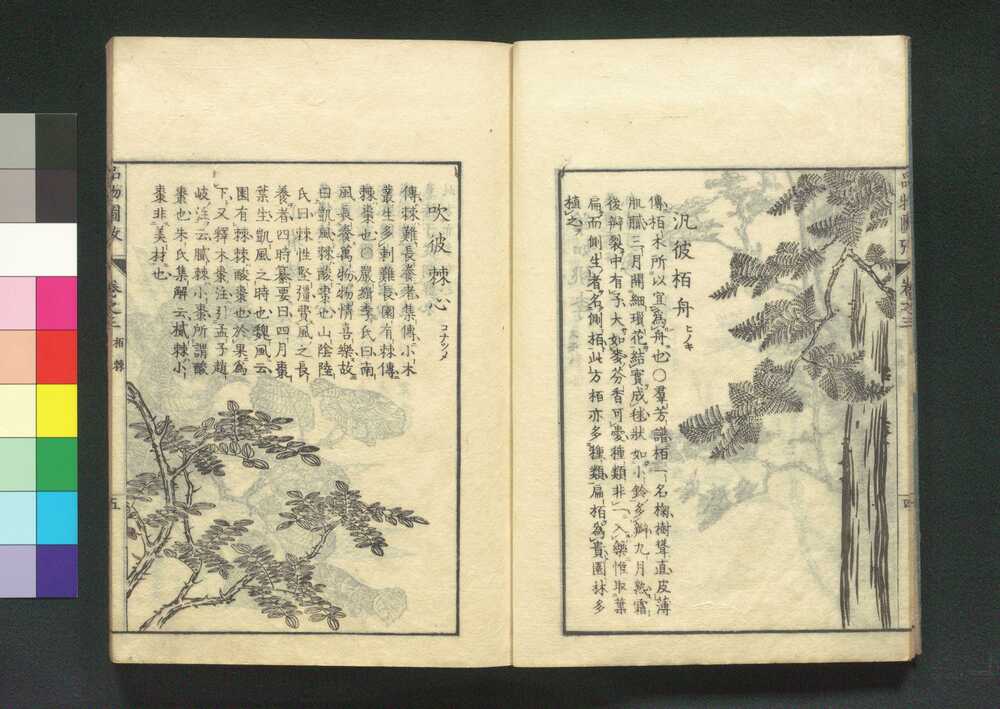 汎彼栢舟 ヒノキ
傳栢木所以宜為舟也○羣芳譜栢一名椈樹聳直皮薄
肌膩三月開細瑣花結實成毬狀如小鈴多瓣九月熟霜
後瓣裂中有子大如麥芬香可愛種類非一入藥惟取葉
扁而側生者名側栢此方栢亦多種類扁栢為貴園林多
植之
吹彼棘心 コナツメ
傳棘難長養者集傳小木
叢生多刺難長園有棘傳
棘棗也○嚴緝李氏曰南
風長養萬物物情喜樂故
曰凱風棘酸棗也山陰陸
氏曰棘性堅彊費風之長
養者四時纂要曰四月棗
葉生凱風之時也魏風云
園有棘棘酸棗也於果為
下又釋木棗注引孟子趙
岐注云膩棘小棗所謂酸
棗也朱氏集解云棫棘小
棗非美材也
品物圖攷 卷之三 栢 棘 五
品物圖攷 卷之三 四